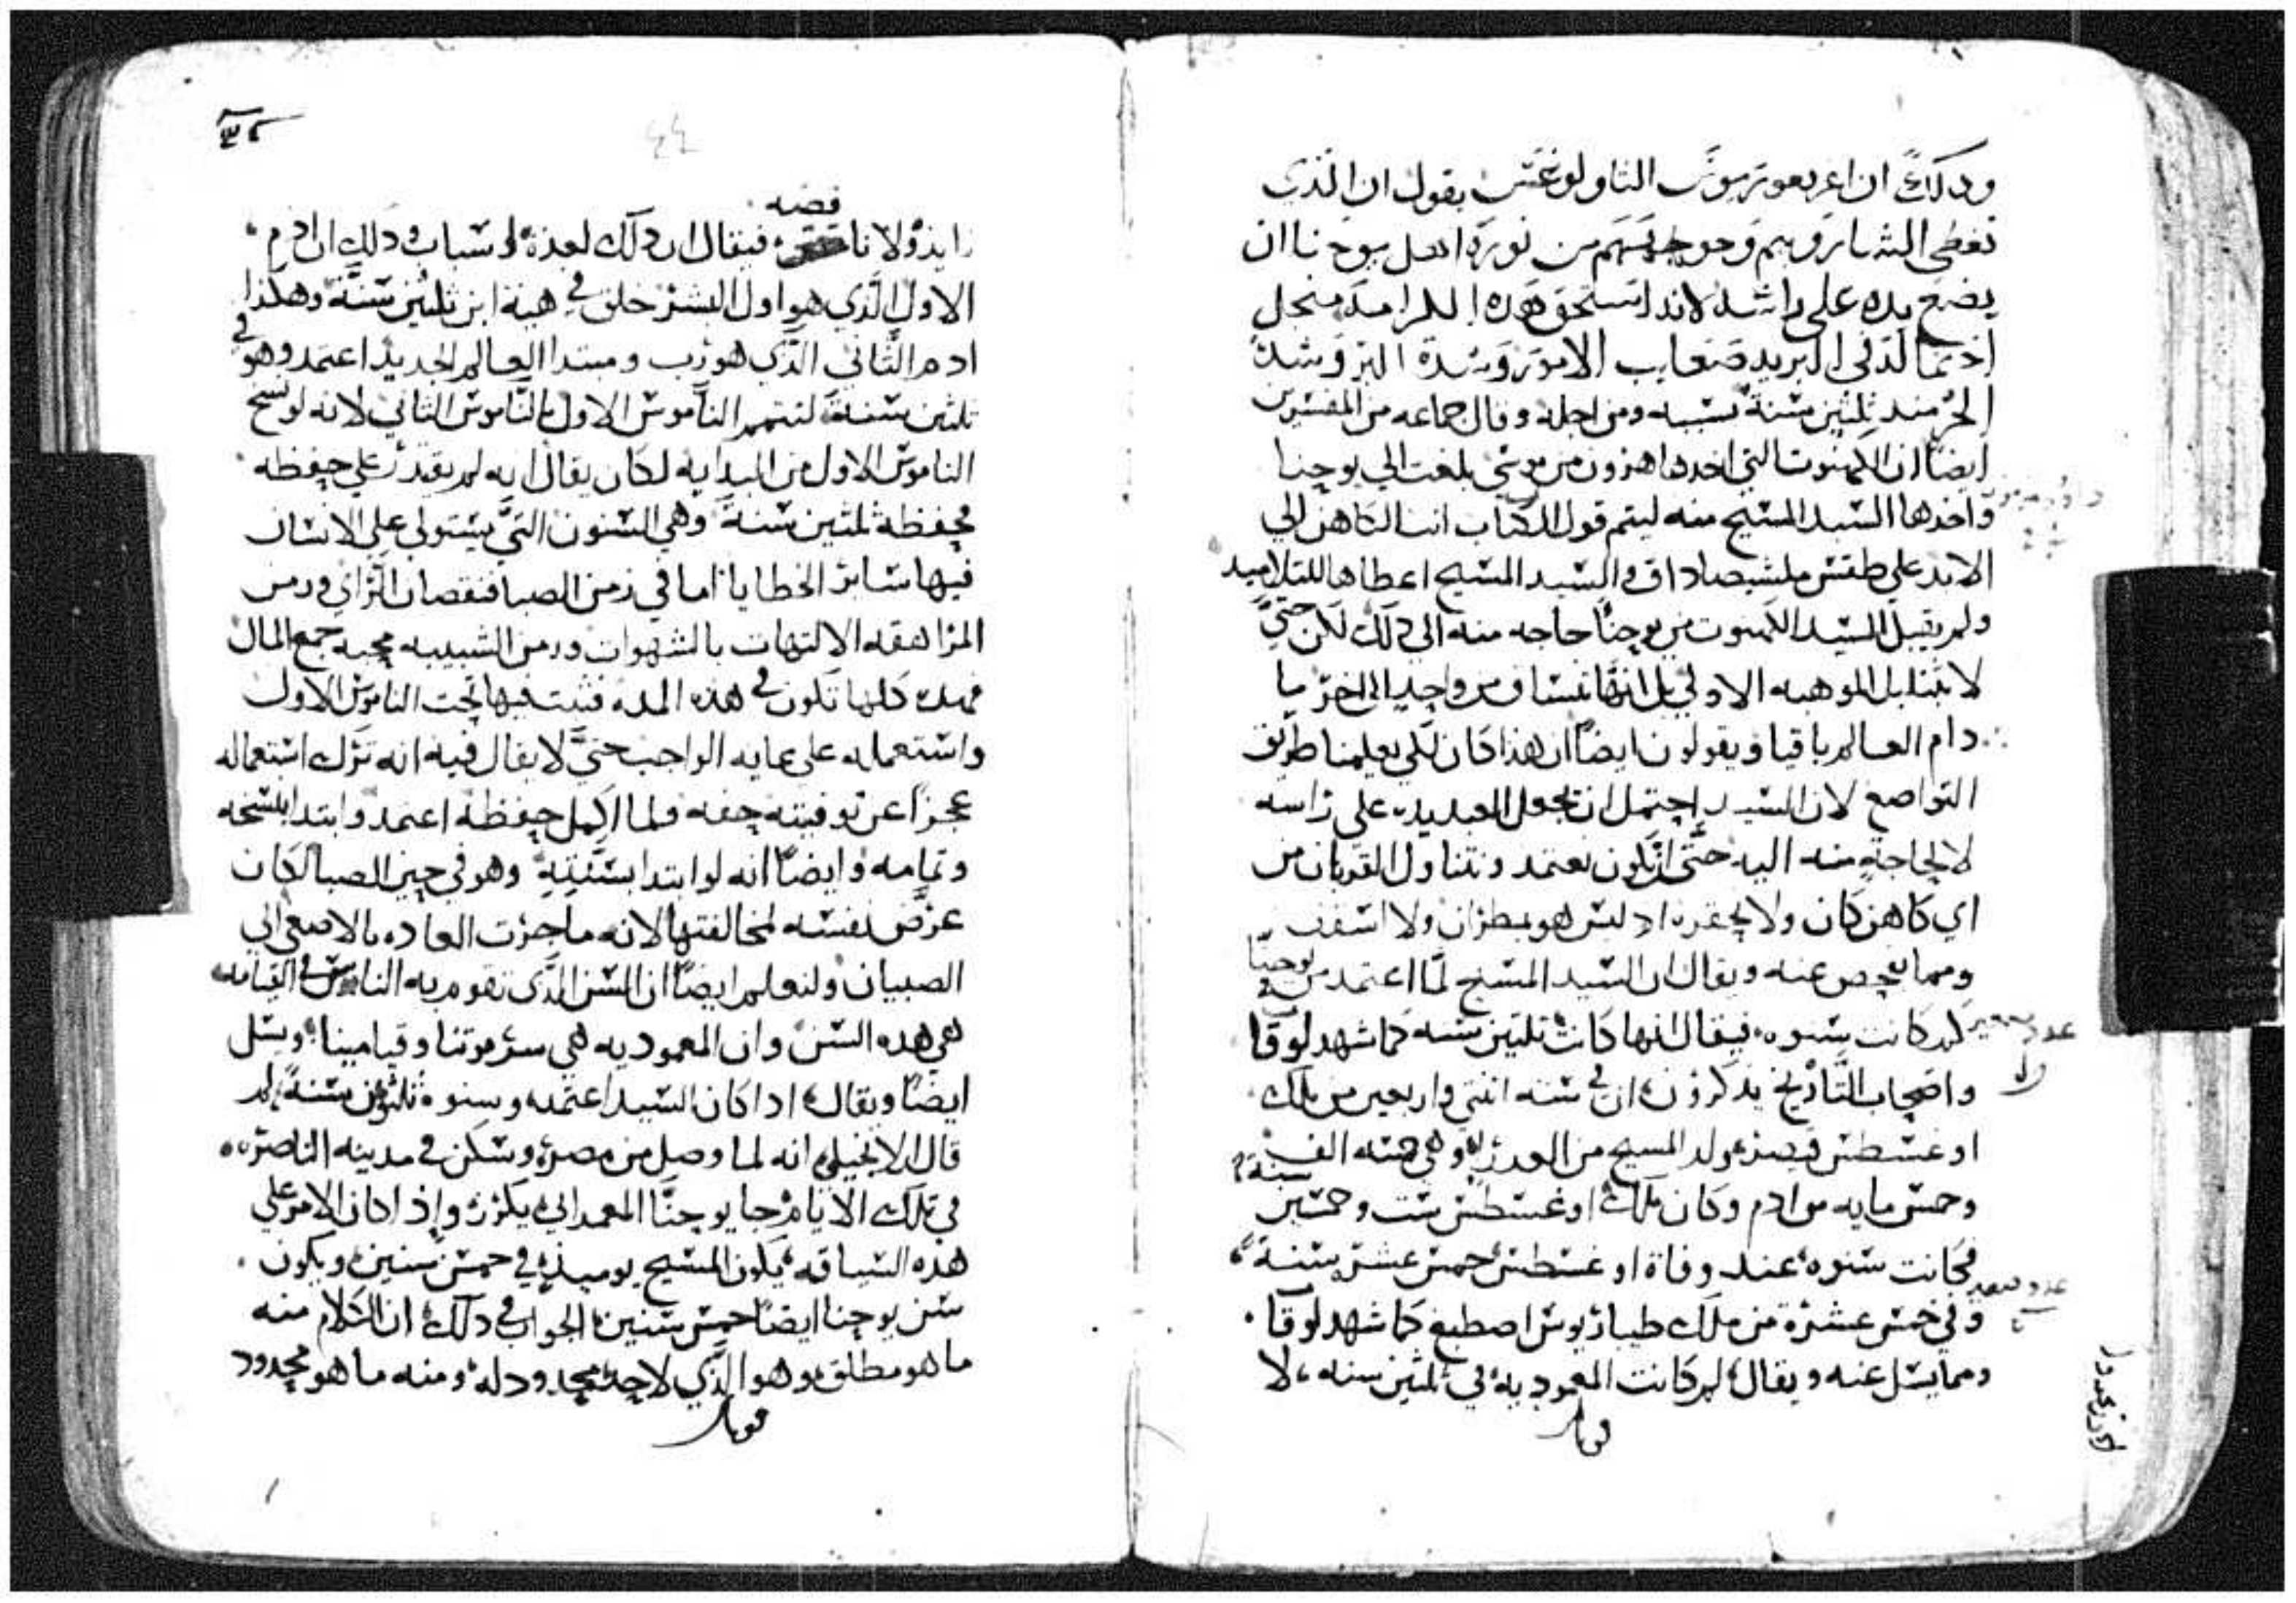 وذلك ان اغريغوريوس الثاولوغس يقول ان الذي
تغطى الشاروبيم وجوههم من نوره اهل يوحنا ان
يضع يده على راسه لانه استحق هذه الكرامه من اجل
احتماله في البريه صعايب الامور وشدة البرد وشدة
الحر منذ ثلثين سنة بسببه ومن اجله وقال جماعه من المفسرين
ايضًا ان الكهنوت التي اخدها هرون من موسي بلغت الي يوحنا
واخدها السيد المسيح منه ليتم قول الكتاب انت الكاهن الي
الابد علي طقس ملشيصاداق والسيد المسيح اعطاها للتلاميد
ولم يقبل السيد الكهنوت من يوحنا حاجه منه الى ذلك لكن حتي
لا تتبابل الموهبه الاولي بل انها تنساق من واحد الى اخر ما
دام العالم باقيا ويقولون ايضًا ان هذا كان لكي يعلمنا طريق
التواضع لان السيد احتمل ان تجعل العبد يده علي راسه
لا لحاجة منه اليه حتى ان نكون نعتمد ونتناول القربان من
اي كاهن كان ولا نحقره اد ليس هو بمطران ولا اسقف
ومما يفحص عنه ويقال ان السيد المسيح لما اعتمد من يوحنا
كم كانت سنوه فيقال انها كانت ثلثين سنه كما شهد لوقا
واصحاب التاريخ يذكرون ان في سنه اثنتي واربعين من ملك
اوغسطس قيصر ولد المسيح من العدرى وهي خمسه الف سنة
وخمس مايه من ادم وكان ملك اوغسطس ست وخمسين
فكانت سنوه عند وفاة اوغسطس خمس عشر سنة
وفي خمس عشرة من ملك طيباريوس اصطبغ كما شهد لوقا
ومما يسل عنه ويقال لم كانت المعموديه في ثلثين سنه لا
قوبل
٤٤
زايد ولا ناقصه فيقال ان ذلك لعدة اسباب وذلك ان ادم
الاول الذي هو اول البشر خلق في هية ابن ثلثين سنة وهكذا
ادم الثاني الذي هو رب ومبتدا العالم الجديد اعتمد وهو في
ثلثين سنة ليتمم الناموس الاول بالناموس الثاني لانه لو نسخ
الناموس الاول من البدايه لكان يقال انه لم يقدر علي حفظه
فحفظه ثلثين سنة وهي السنون التي يستولي علي الانسان
فيها ساير الخطايا اما في زمن الصبا فنقصان الراي وزمن
المراهقه الالتهاب بالشهوات وزمن الشبيبه محبه جمع المال
فهده كلها تكون في هذه المده فثبت فيها تحت الناموس الاول
واستعماله على غايه الواجب حتي لا يقال فيه انه ترك استعماله
عجزًا عن توفيته حقه ولما اكمل حفظه اعتمد وابتدا بنسخه
وتمامه وايضًا انه لو ابتدا بسنته وهو في حين الصبا لكان
عرض نفسه لمخالفتها لانه ما جرت العاده بالاصغى الي
الصبيان ولنعلم ايضًا ان السن الذي تقوم به الناس في القيامه
هي هده السن وان المعموديه هي سر موتنا وقيامتنا ويسل
ايضًا ويقال ادا كان السيد اعتمد وسنوه ثلثون سنة لم
قال الانجيلي انه لما وصل من مصر وسكن في مدينه الناصره
في تلك الايام جا يوحنا المعمداني يكرز واذا كان الامر علي
هذه السياقه يكون المسيح يوميذ في خمس سنين ويكون
سن يوحنا ايضًا خمس سنين الجواب في ذلك ان الكلام منه
ما هو مطلق وهو الذي لا حد محدود له ومنه ما هو محدود
قوبل